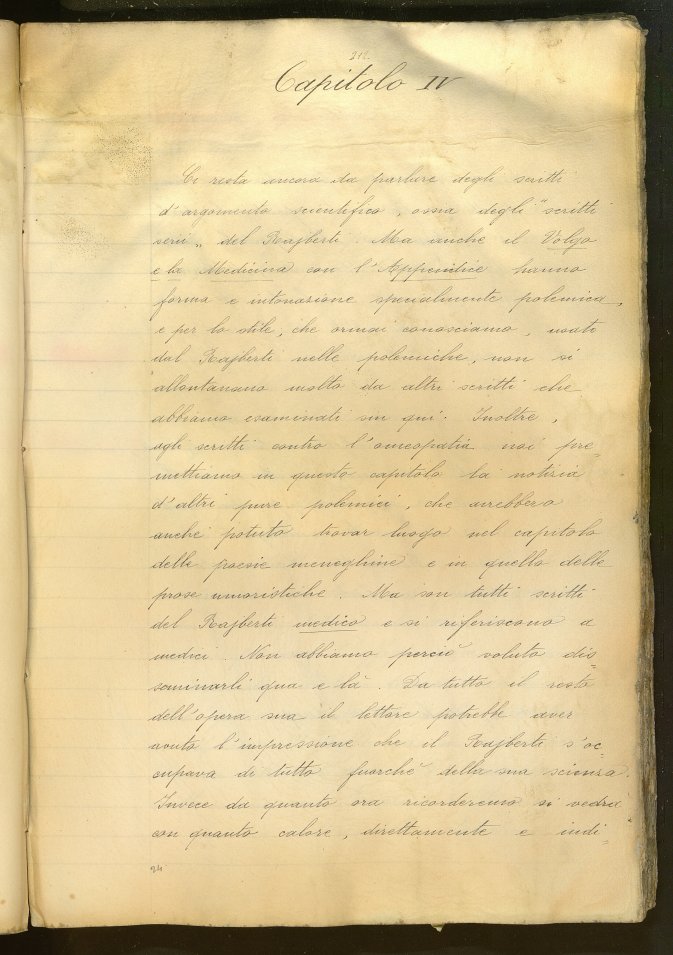 212
Capitolo IV
Ci resta ancora da parlare degli scritti
d'argomento scientifico, ossia degli "scritti
seri" del Rajberti. Ma anche il Volgo
e la Medicina con l'Appendice hanno
forma e intonazione specialmente polemica,
e per lo stile, che ormai conosciamo, usato
dal Rajberti nelle polemiche, non si
allontanano molto da altri scritti che
abbiamo esaminati sin qui. Inoltre,
agli scritti contro l'omeopatia noi pre-
mettiamo in questo capitolo la notizia
d'altri pure polemici, che avrebbero
anche potuto trovar luogo nel capitolo
delle poesie meneghine e in quello delle
prose umoristiche. Ma son tutti scritti
del Rajberti medico e si riferiscono a
medici. Non abbiamo perciò voluto dis-
seminarli qua e là. Da tutto il resto
dell'opera sua il lettore potrebbe aver
avuto l'impressione che il Rajberti s'oc-
cupava di tutto fuorchè della sua scienza.
Invece da quanto ora ricorderemo si vedrà
con quanto calore, direttamente e indi-
24